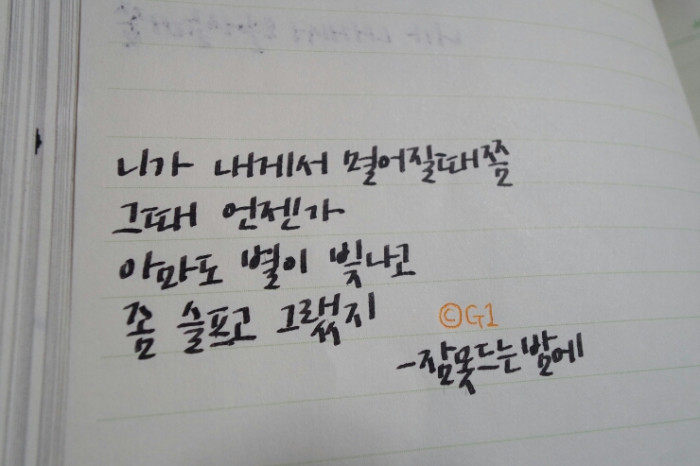 니가 내게서 멀어질때쯤
그때 언젠가
아마도 별이 빛나고
좀 슬프고 그랬지
©G1
-잠못드는밤에